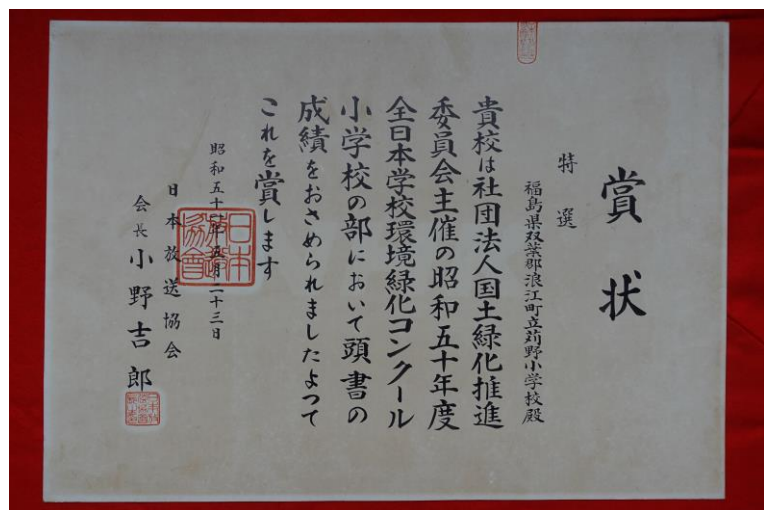 賞状
特選
福島県双葉郡浪江町立苅野小学校殿
貴校は社団法人国土緑化推進
委員会主催の昭和五十年度
全日本学校環境緑化コンクール
小学校の部において頭書の
成績をおさめられましたよつて
これを賞します
昭和五十 年五月二十三日
日本放送協会
会長 小野吉郎
日本放送協會